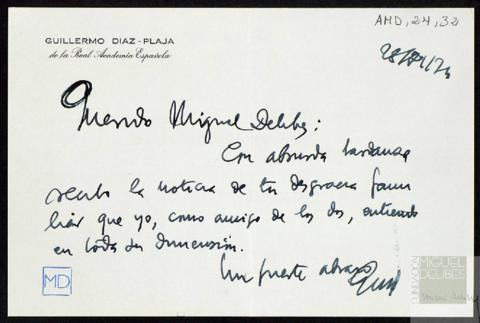 AMD, 24, 32
GUILLERMO DIAZ-PLAJA
de la Real Academia Española
Querido Miguel Delibes:
Con absurda tardanza
recibo la noticia de tu desgracia fami
liar que yo, como amigo de los dos, entiendo
en toda su dimensión.
Un fuerte abrazo
MD
FUNDACIÓN
MIGUEL
DELIBES